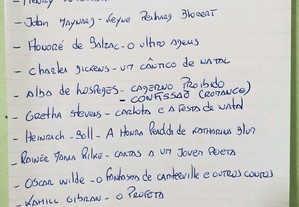 - John Maynard Keyne Richard Blovert
- Honoré de Balzac - O Ultro Adeus
- Charles Dickens - Um Cântico de Natal
- Alba de Hospedes - Caderno Proibido
- Confissão (Romance)
- Gretha Stevens - Carlota e a Festa de Natal
- Heinrich - Boll - A Honra Perdida de Katharina Blum
- Rainer Maria Rilke - Cartas a um Jovem Poeta
- Oscar Wilde - O Fantasma de Canterville e outros contos
- Kahill Gibran - O Profeta